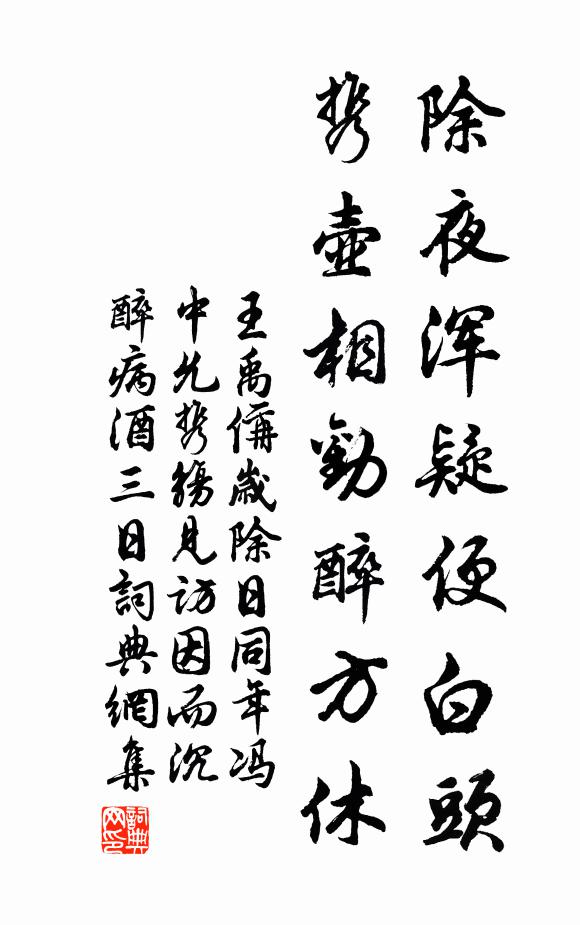 除夜渾疑便白頭
攜壺相勸醉方休
王禹偁歲除日同年冯
中允攜觴見訪因而沉
醉病酒三日詞典網集
詞典网印